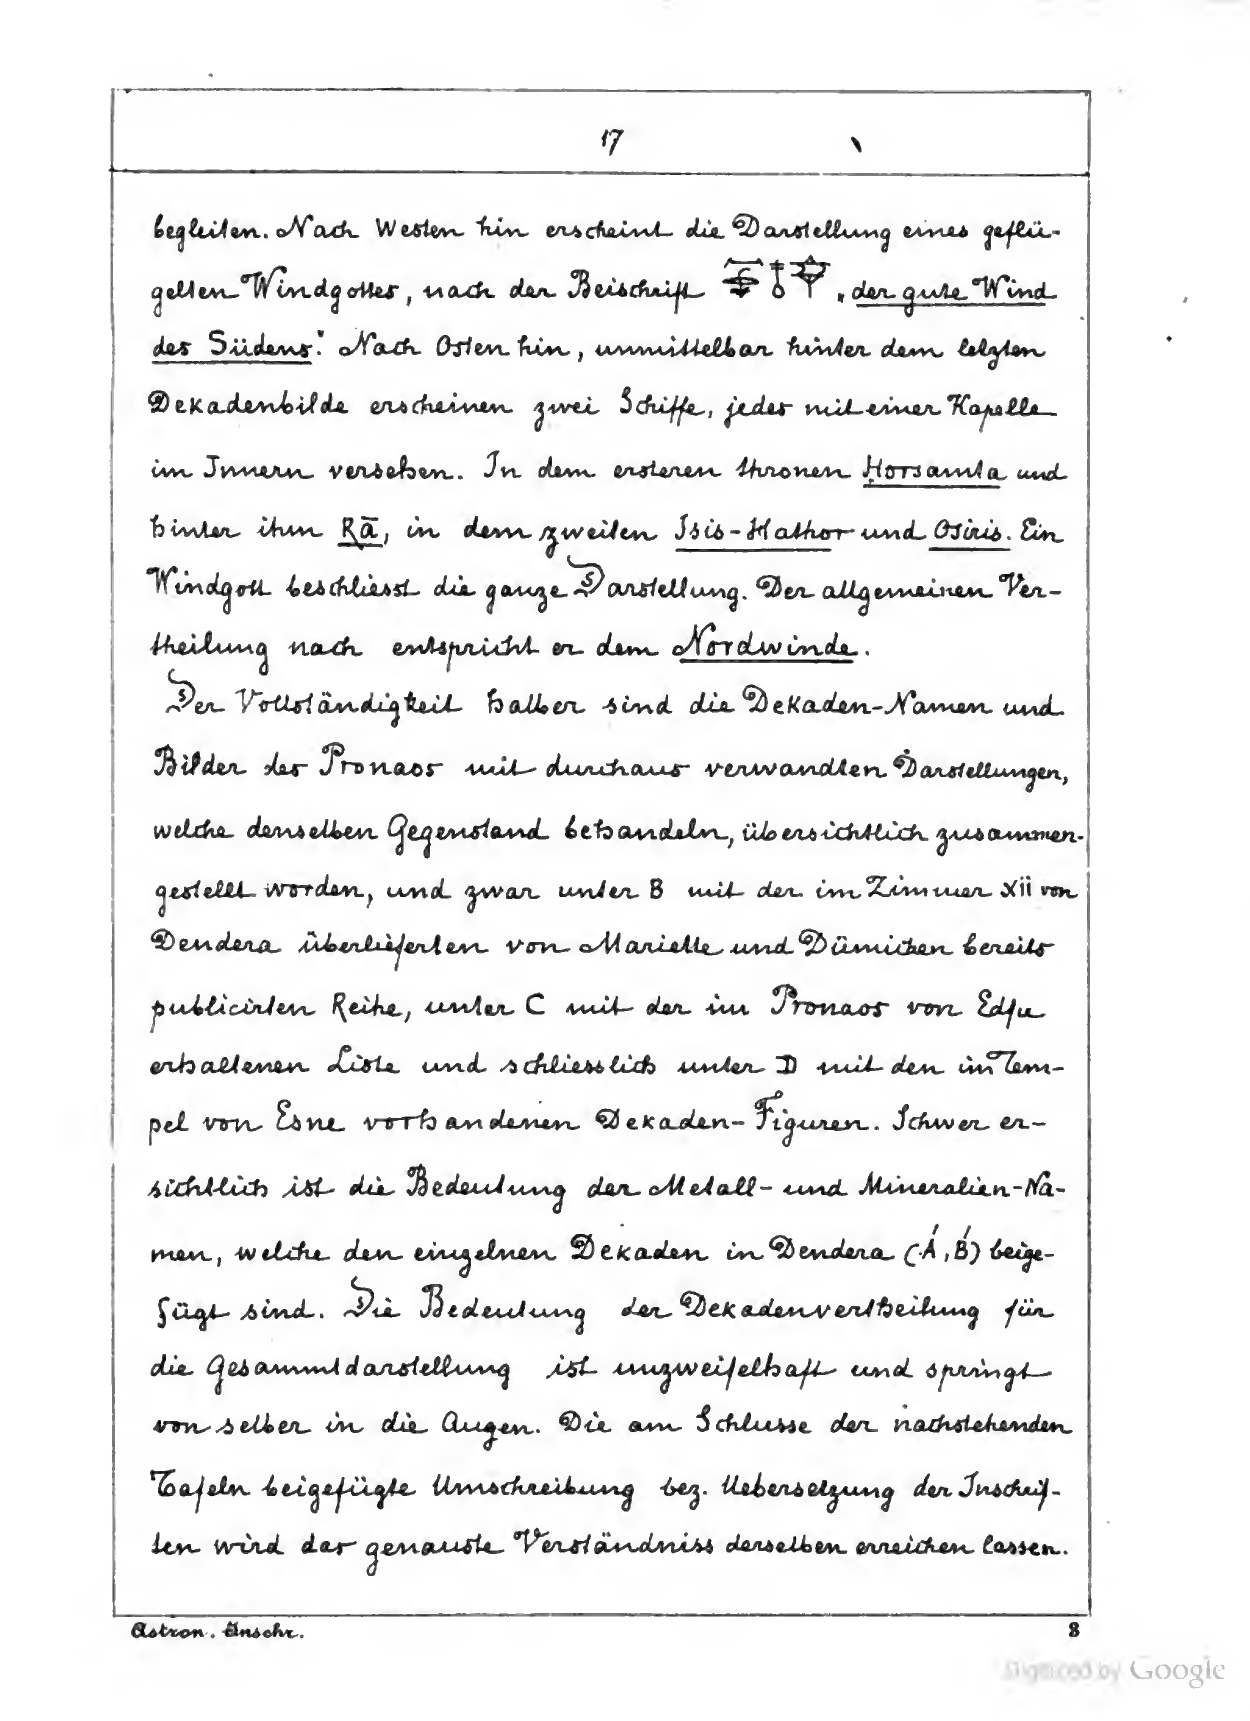 17
begleiten. Nach Westen hin erscheint die Darstellung eines geflü-
gelten Windgottes, nach der Beischrift „der gute Wind
des Südens“. Nach Osten hin, unmittelbar hinter dem letzten
Dekadenbilde erscheinen zwei Schiffe, jedes mit einer Kapelle
im Innern versehen. In dem ersteren thronen Horsamta und
hinter ihm Rā, in dem zweiten Isis-Hathor und Osiris. Ein
Windgott beschliesst die ganze Darstellung. Der allgemeinen Ver-
theilung nach entspricht er dem Nordwinde.
Der Vollständigkeit halber sind die Dekaden-Namen und
Bilder des Pronaos mit durchaus verwandten Darstellungen,
welche denselben Gegenstand behandeln, übersichtlich zusammen-
gestellt worden, und zwar unter B mit der im Zimmer XII von
Dendera überlieferten von Mariette und Dümichen bereits
publicirten Reihe, unter C mit der im Pronaos von Edfu
erhaltenen Liste und schliesslich unter D mit den im Tem-
pel von Esne vorhandenen Dekaden-Figuren. Schwer er-
sichtlich ist die Bedeutung der Metall- und Mineralien-Na-
men, welche den einzelnen Dekaden in Dendera (A, B) beige-
fügt sind. Die Bedeutung der Dekadenvertheilung für
die Gesammtdarstellung ist unzweifelhaft und springt
von selber in die Augen. Die am Schlusse der nachstehenden
Tafeln beigefügte Umschreibung bez. Uebersetzung der Inschrif-
ten wird das genauste Verständniss derselben erreichen lassen.
Astron. Inschr. 3
Digitized by Google